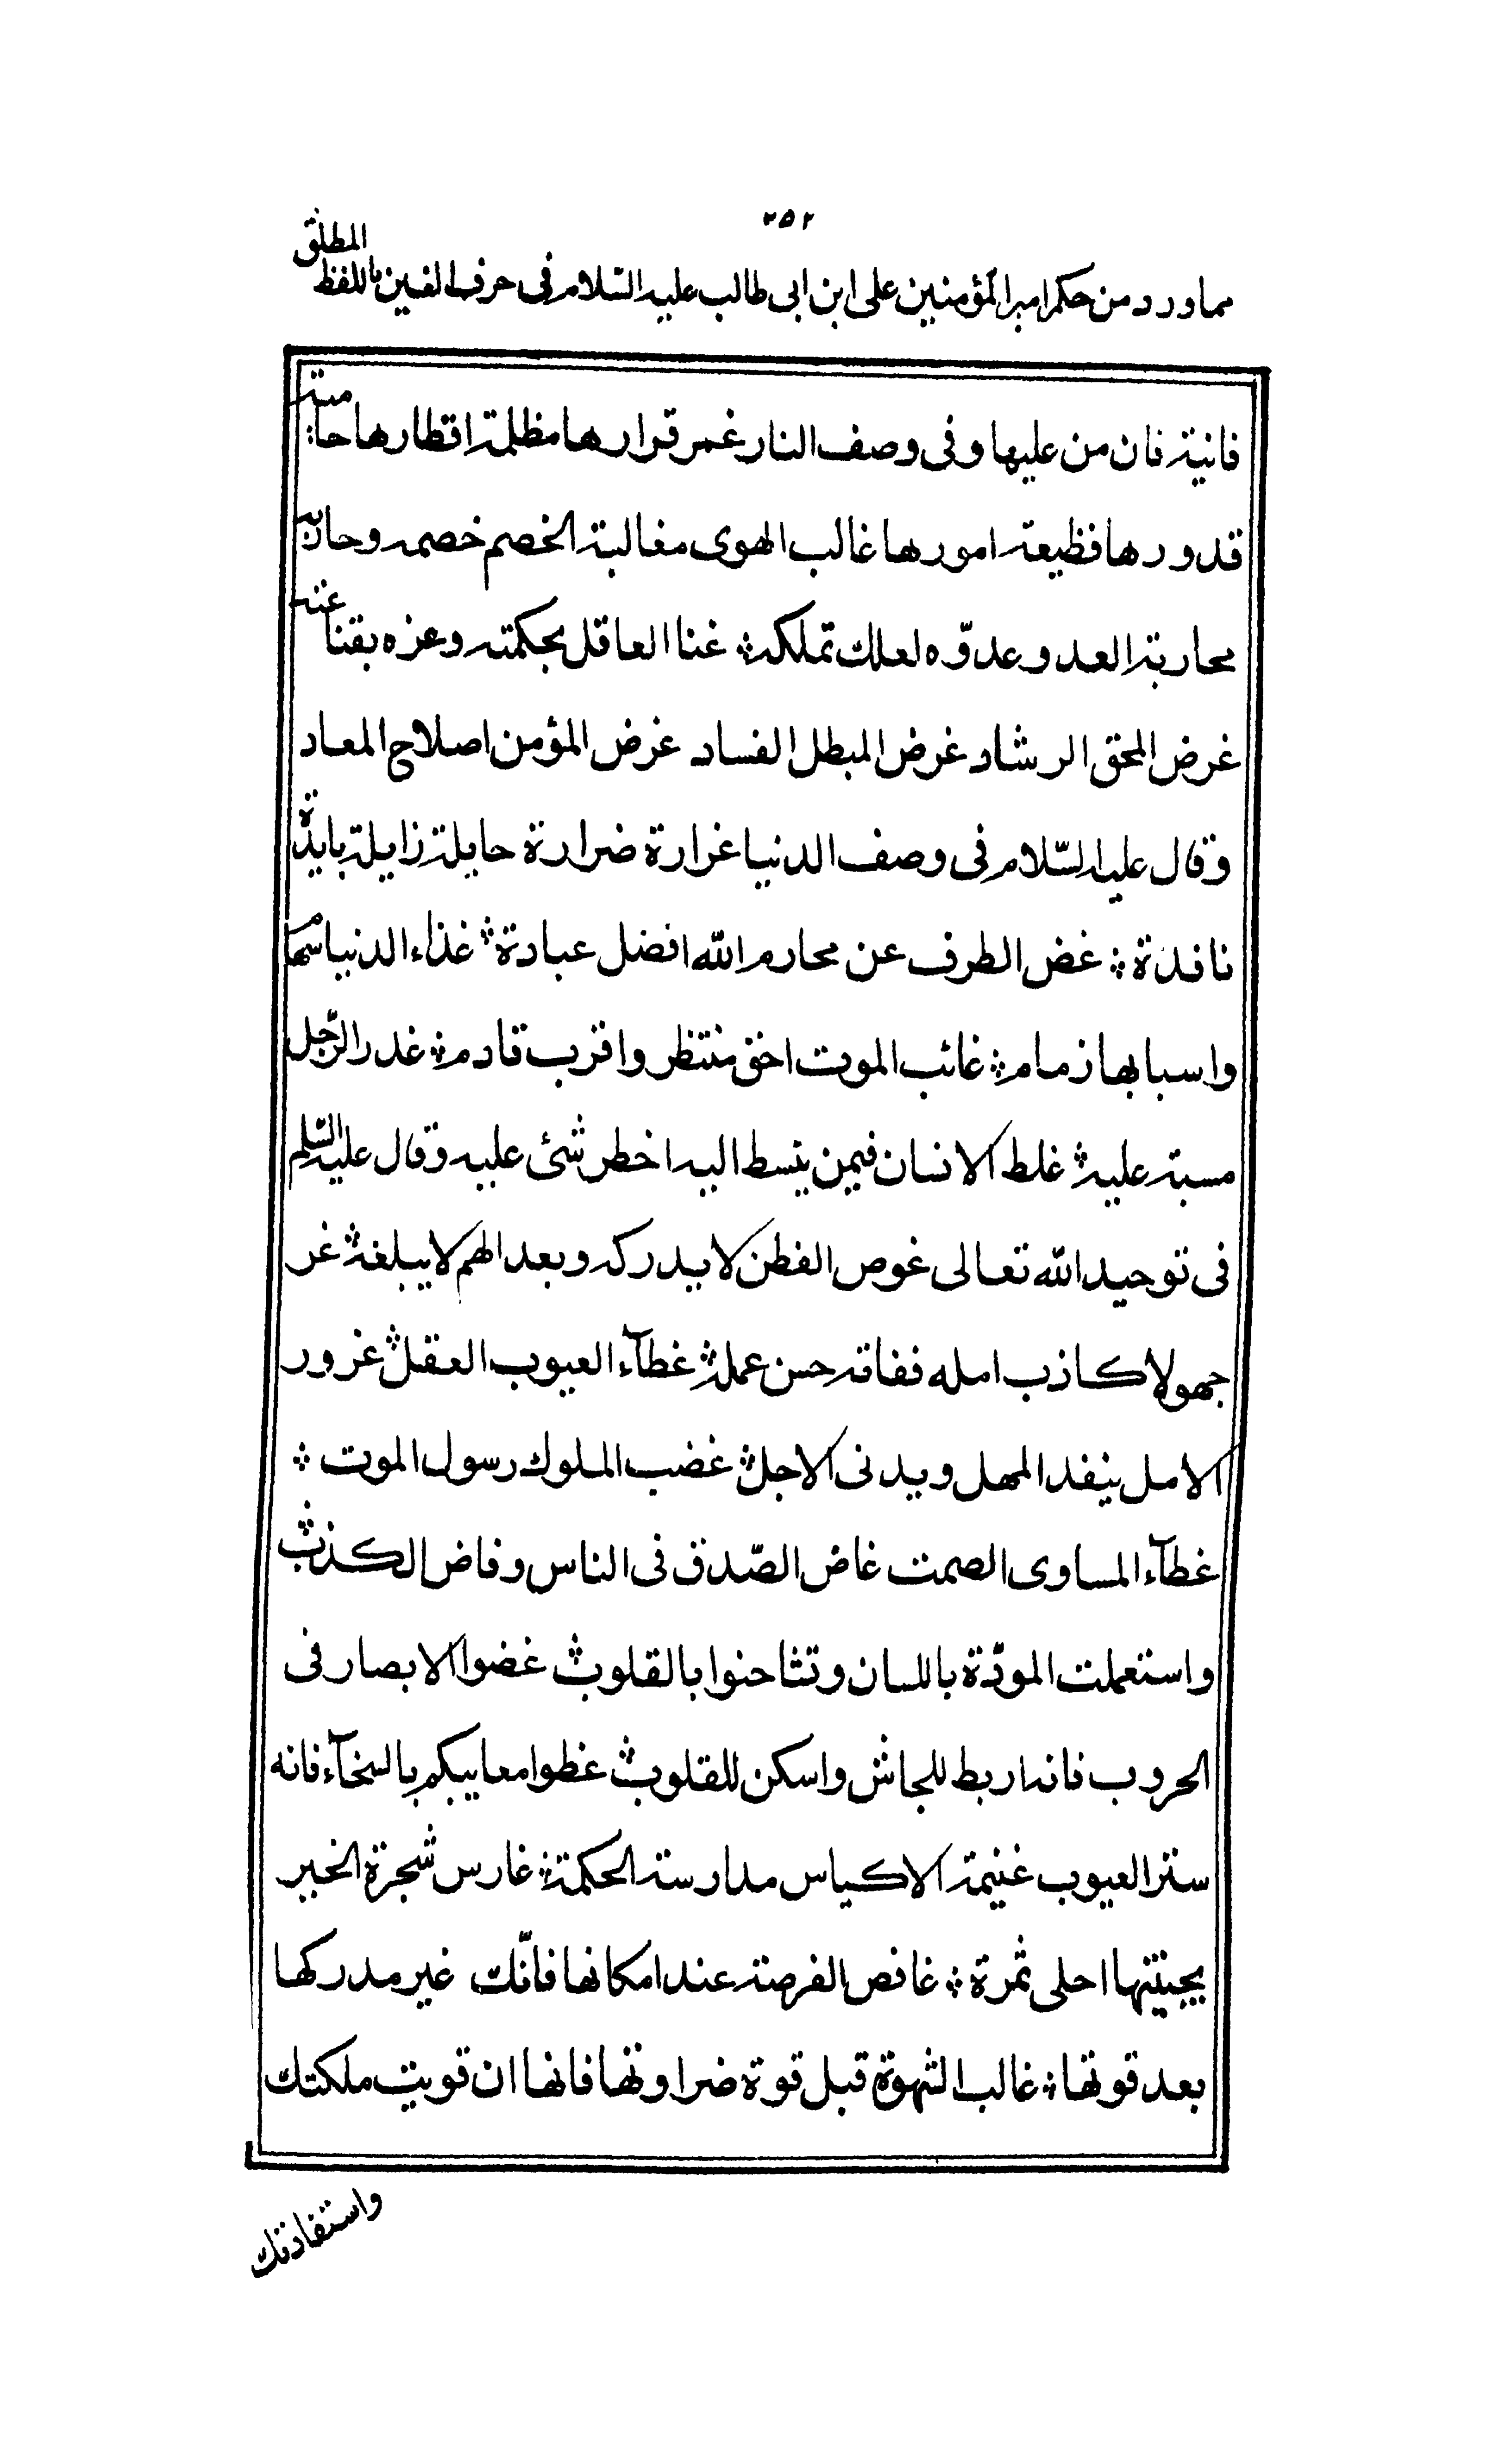 ٢٥٢
مما ورد من حكم امير المؤمنين على ابن ابى طالب عليه السّلام فى حرف الغين باللفظ المطلق
فانية فان من عليها وفى وصف النار غمر قرارها مظلمة اقطارها حامية
قدورها فظيعة امورها غالب الهوى مغالبة الخصم خصمه وحاربه
محاربة العدو عدوّه لعلك تملكه ؞ غنا العاقل بحكمته وعزه بقناعته
غرض المحق الرشاد غرض المبطل الفساد غرض المؤمن اصلاح المعاد
وقال عليه السّلام فى وصف الدنيا غرارة ضرارة حايلة زايلة بايدة
نافدة ؞ غض الطرف عن محارم الله افضل عبادة ؞ غذاء الدنيا سمام
واسبابها زمام ؞ غائب الموت احق منتظر واقرب قادم ؞ غدر الرّجل
مسبة عليه ؞ غلط الانسان فيمن ينبسط اليه اخطر شئ عليه وقال عليه السّلم
فى توحيد الله تعالى غوص الفطن لا يدركه وبعد الهمم لا يبلغه ؞ غر
جهولا كاذب امله ففاته حسن عمله ؞ غطآء العيوب العقل ؞ غرور
الامل ينفد المهل ويدنى الاجل ؞ غضب الملوك رسول الموت ؞
غطآء المساوى الصمت غاض الصّدق فى الناس وفاض الكذب ؞
واستعملت المودّة باللسان وتشاحنوا بالقلوب ؞ غضوا الابصار فى
الحروب فانه اربط للجاش واسكن للقلوب ؞ غطوا معايبكم بالسخآء فانه
ستر العيوب غنيمة الاكياس مدارسة الحكمة ؞ غارس شجرة الخير
يجتنيها احلى ثمرة ؞ غافص الفرصة عند امكانها فانّك غير مدركها
بعد قوتها ؞ غالب الشهوة قبل قوة ضراوتها فانها ان قويت ملكتك
واستفادتك